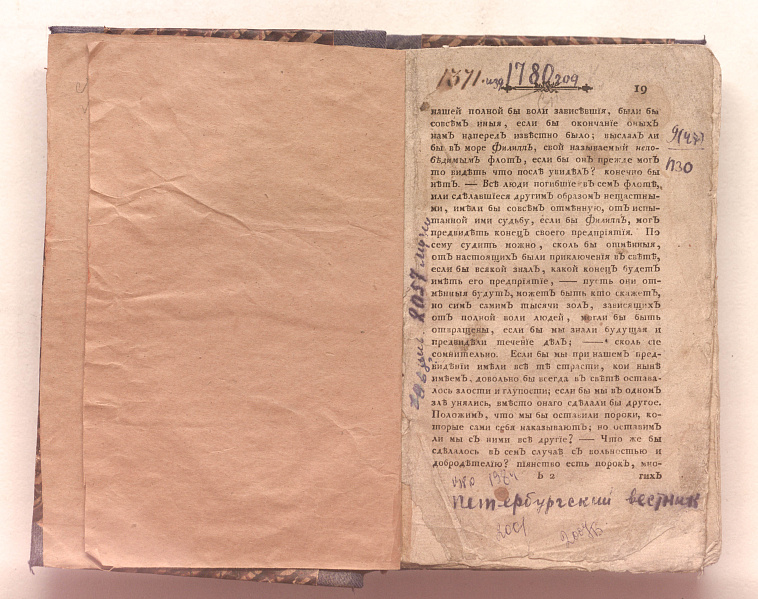 1371.изд 1780 год
19
нашей полной бы воли зависѣвшія, были бы
совсѣмЪ иныя, если бы окончаніе оныхЪ
намЪ напередЪ извѣстно было; выслалЪ ли
бы вЪ море ФилиппЪ, свой называемый непо-
бѣдимымЪ флотЪ, если бы онЪ прежде могЪ
то видѣть что послѣ увидѣлЪ? конечно бы
нѣтЪ. — Всѣ люди погибшіе вЪ семЪ флотѣ,
или сдѣлавшіеся другимЪ образомЪ нещастны-
ми, имѣли бы совсѣмЪ отмѣнную, отЪ испы-
танной ими судьбу, если бы ФилиппЪ, могЪ
предвидѣть конецЪ своего предпріятія. По
сему судить можно, сколь бы отмѣнныя,
отЪ настоящихЪ были приключенія вЪ свѣтѣ,
если бы всякой зналЪ, какой конецЪ будетЪ
имѣть его предпріятіе, — пусть они от-
мѣнныя будутЪ, можетЪ быть кто скажетЪ,
но симЪ самимЪ тысячи золЪ, зависящихЪ
отЪ полной воли людей, могли бы быть
отвращены, если бы мы знали будущая и
предвидѣли теченіе дѣлЪ; — сколь сіе
сомнительно. Если бы мы при нашемЪ пред-
видѣніи имѣли всѣ тѣ страсти, кои нынѣ
имѣемЪ, довольно бы всегда вЪ свѣтѣ остава-
лось злости и глупости; если бы мы вЪ одномЪ
злѣ унялись, вмѣсто онаго сдѣлали бы другое.
ПоложимЪ, что мы бы оставили пороки, ко-
торые сами себя наказываютЪ; но оставимЪ
ли мы сЪ ними всѣ другіе? — Что же бы
сдѣлалось вЪ семЪ случаѣ сЪ вольностью и
добродѣтелію? піянство есть порокЪ, мно-
Ъ 2 гихЪ
Петербургский вестник
9(47)
П30